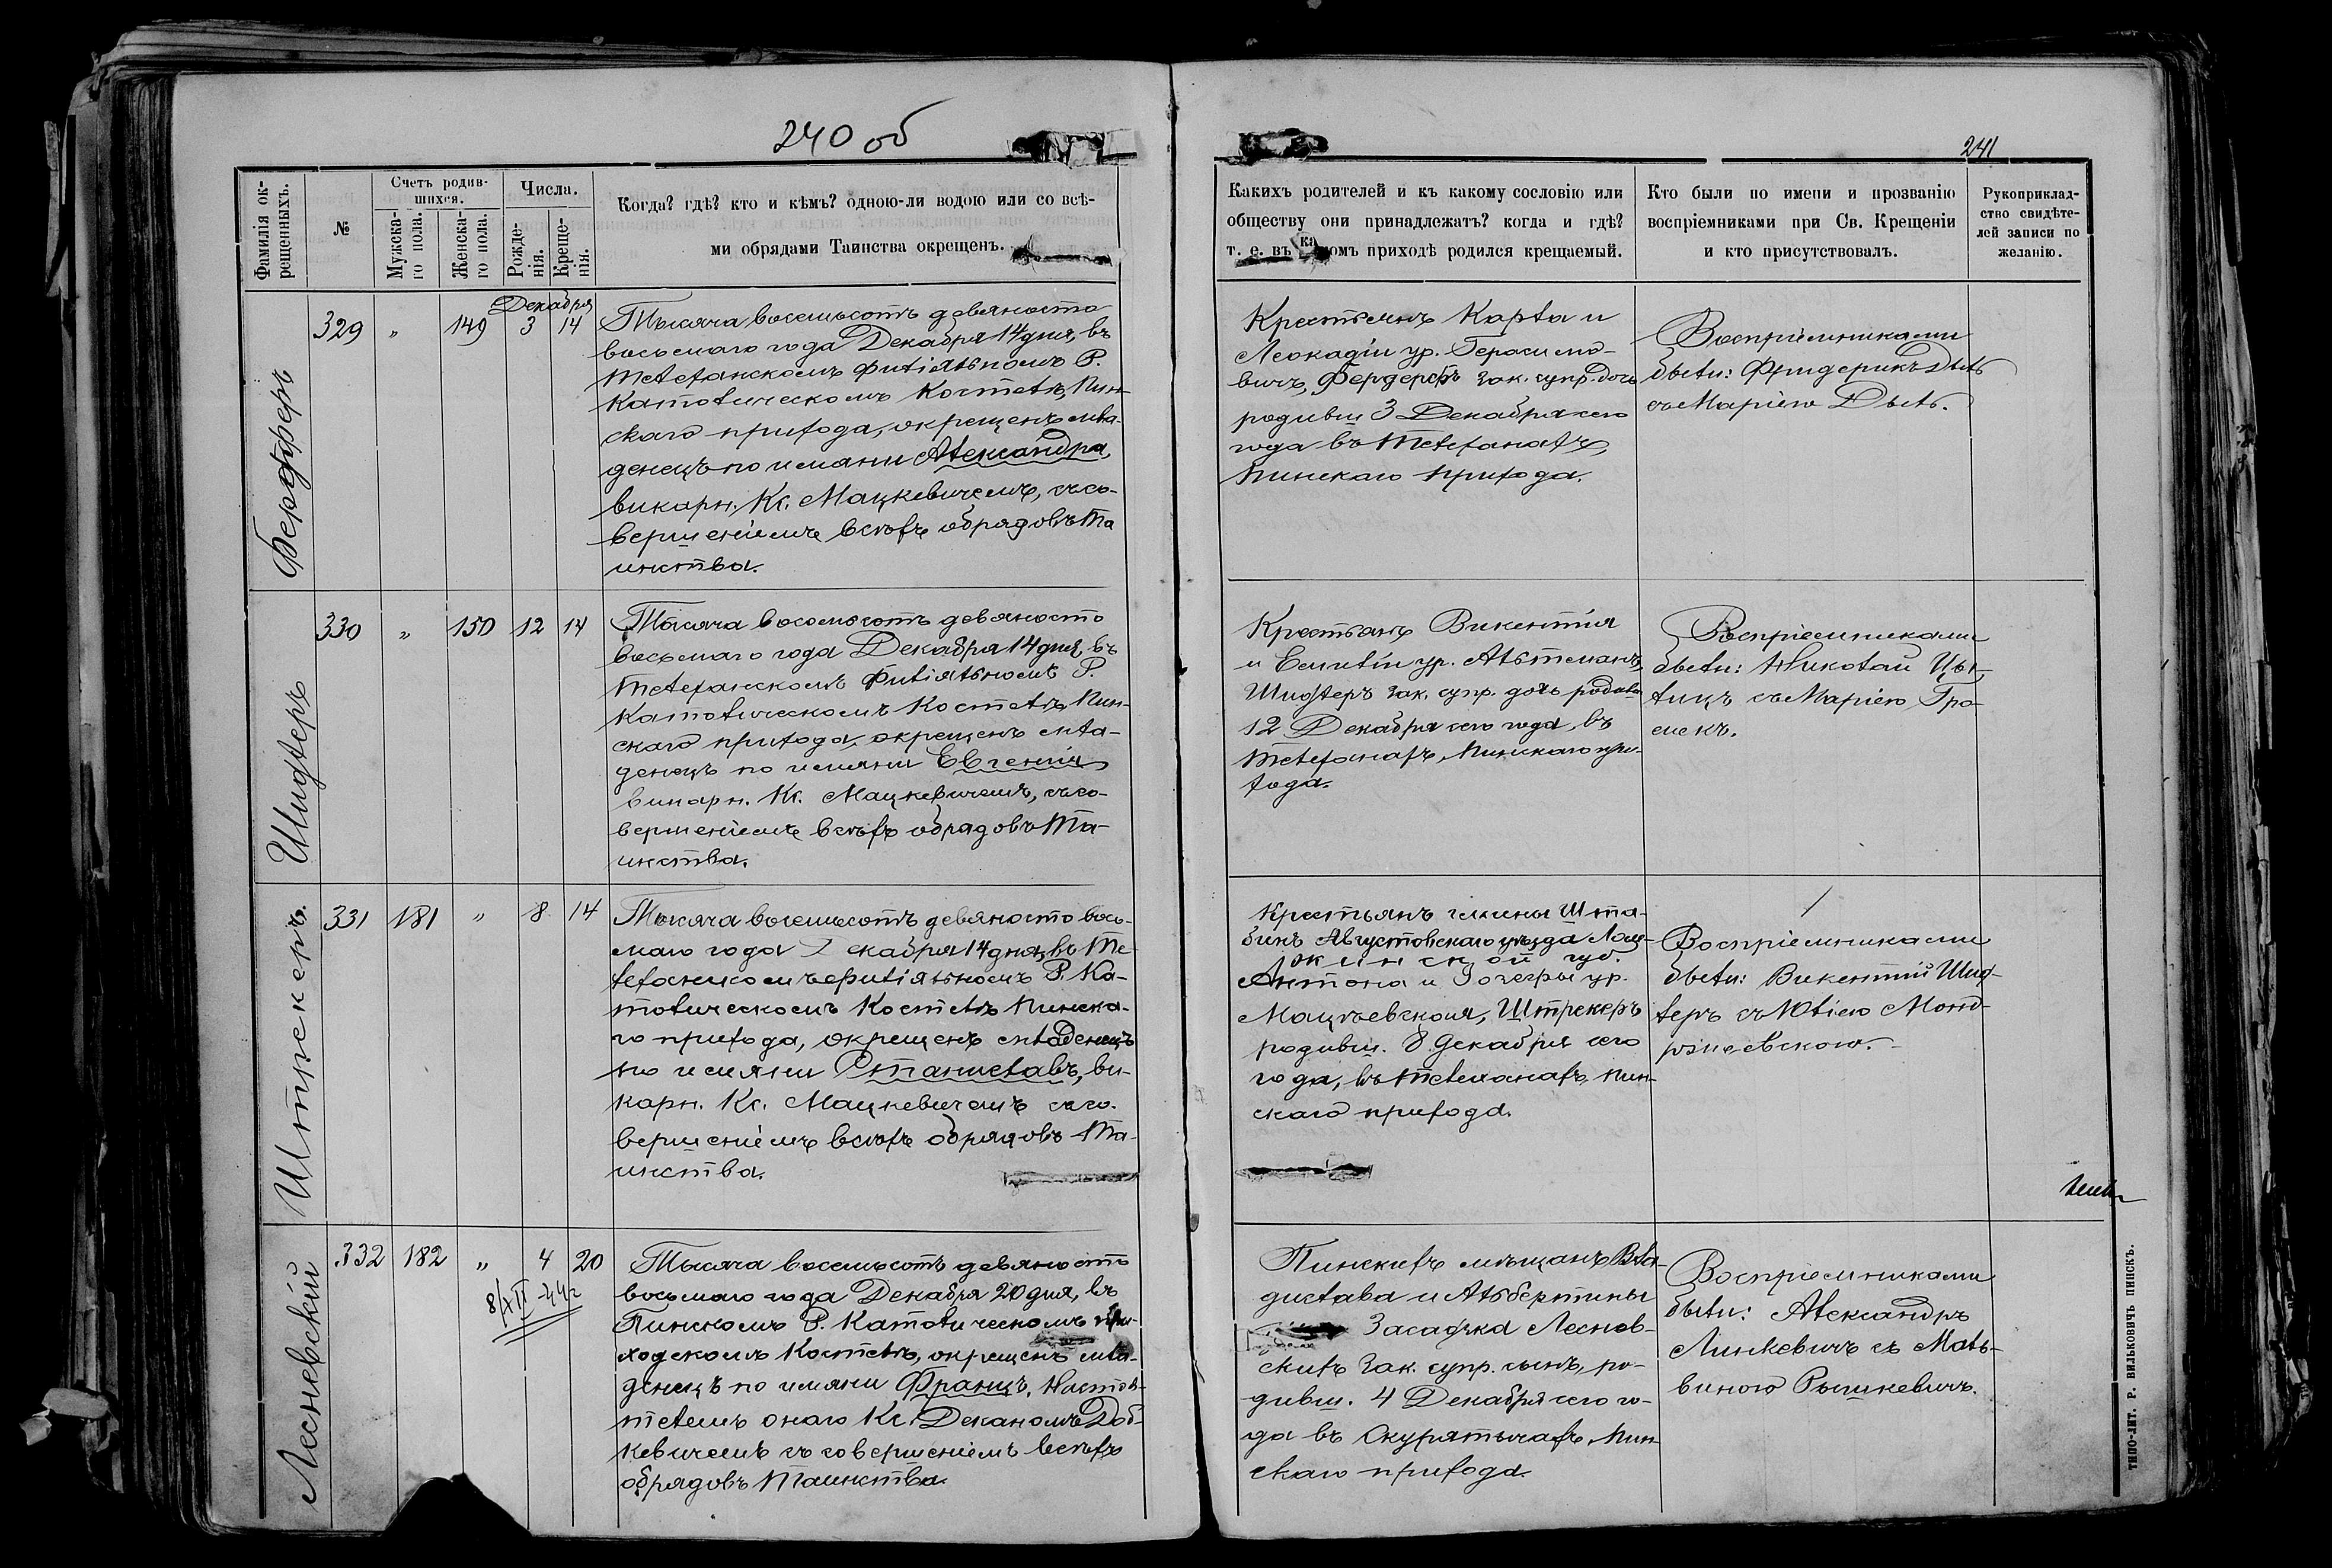 240 об
241
Фамилія ок-
рещенныхъ.
№
Счетъ родив-
шихся.
Мужска-
го пола.
Женска-
го пола.
Числа.
Рожде-
нія.
Креще-
нія.
Когда? гдѣ? кто и кѣмъ? одною-ли водою или со всѣ-
ми обрядами Таинства окрещенъ.
Какихъ родителей и къ какому сословію или
обществу они принадлежатъ? когда и гдѣ?
т. е. въ какомъ приходѣ родился крещаемый.
Кто были по имени и прозванію
воспріемниками при Св. Крещеніи
и кто присутствовалъ.
Рукоприклад-
ство свидѣте-
лей записи по
желанію.
Декабря
329 " 149 3 14
Тысяча восемьсотъ девяносто
восьмаго года Декабря 14 дня, въ
Телеханскомъ филіяльномъ Р.
Католическомъ Костелѣ, Пин-
скаго прихода, окрещенъ мла-
денецъ по имяни Александра,
викарн. Кс. Мацкевичемъ, съ со-
вершеніемъ всѣхъ обрядовъ Та
инства.
Крестьянъ Карла и
Леокадіи ур. Герасимо-
вичъ, зак. супр. дочь
родивш 3 Декабря сего
года въ Телеханахъ,
Пинскаго прихода.
Воспріемниками
были: Фридерикъ Дыль
съ Маріею Дыль.
Шидлеръ
330 " 150 12 14
Тысяча восемьсотъ девяносто
восьмаго года Декабря 14 дня, въ
Телеханскомъ филіяльномъ Р.
Католическомъ Костелѣ, Пин-
скаго прихода, окрещенъ мла-
денецъ по имяни Евгенія
викарн. Кс. Мацкевичемъ, съ со-
вершеніемъ всѣхъ обрядовъ Та-
инства.
Крестьянъ Викентія
и Емиліи ур. Альтманъ,
Шидлеръ зак. супр. дочь
12 Декабря сего года, въ
Телеханахъ, Пинскаго при-
хода.
Воспріемниками
были: Николай Цы-
лицъ съ Маріею Гро-
мекъ.
Штрекеръ.
331 181 " 8 14
Тысяча восемьсотъ девяносто вось-
маго года Декабря 14 дня, въ Те-
леханскомъ филіяльномъ Р. Ка-
толическомъ Костелѣ Пинска-
го прихода, окрещенъ младенецъ
по имяни Станиславъ, ви-
карн. Кс. Мацкевичемъ съ со-
вершеніемъ всѣхъ обрядовъ Та-
инства.
Крестьянъ гмины Шта-
бинъ Августовскаго уѣзда Лом-
жинской губ.
Антона и ур.
Мацѣевская, Штрекеръ
родивш. 8 Декабря сего
года, въ Телеханахъ, Пин-
скаго прихода.
Воспріемниками
были: Викентій Шид-
леръ съ Юліею Монд-
ржиевскою.
Лесневскій
332 182 " 4 20
8/XII-44г
Тысяча восемьсотъ девяносто
восьмаго года Декабря 20 дня, въ
Пинскомъ Р. Католическомъ при-
ходскомъ Костелѣ, окрещенъ мла-
денецъ по имяни Францъ, Настоя-
телемъ онаго Кс. Деканомъ Доб-
кевичемъ съ совершеніемъ всѣхъ
обрядовъ Таинства.
Пинскихъ мѣщанъ Вла-
дислава и Альбертины
Засадзка Леснев-
скихъ зак. супр. сынъ, ро-
дивш. 4 Декабря сего го-
да въ Скурятычахъ, Пин-
скаго прихода.
Воспріемниками
были: Александръ
Линкевичъ съ Маль-
виною Рышкевичъ.
ТИПО-ЛИТ. Р. ВИЛЬКОВИЧЪ ПИНСКЪ.